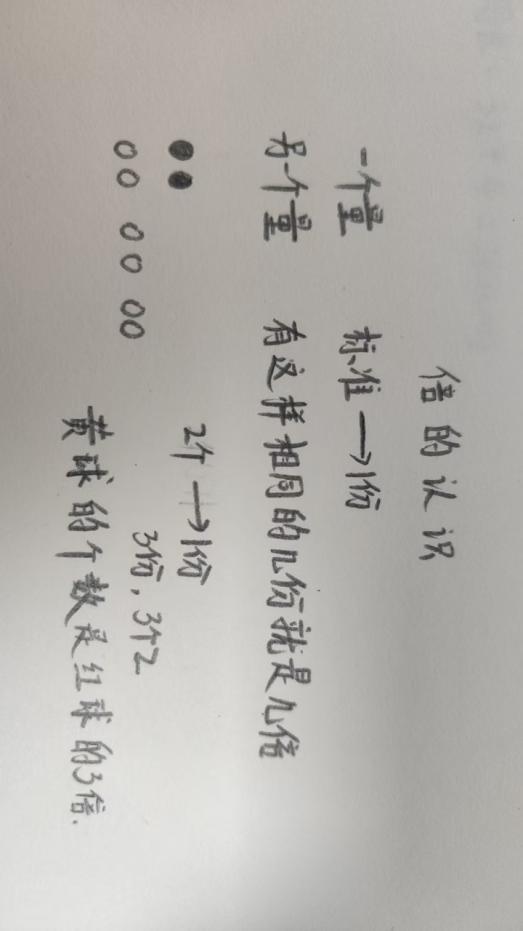 倍的认识
一个量 标准→1份
另一个量 有这样相同的几份就是几倍
●● 2个→1份
00 00 00 3份,3个2
黄球的个数是红球的3倍.